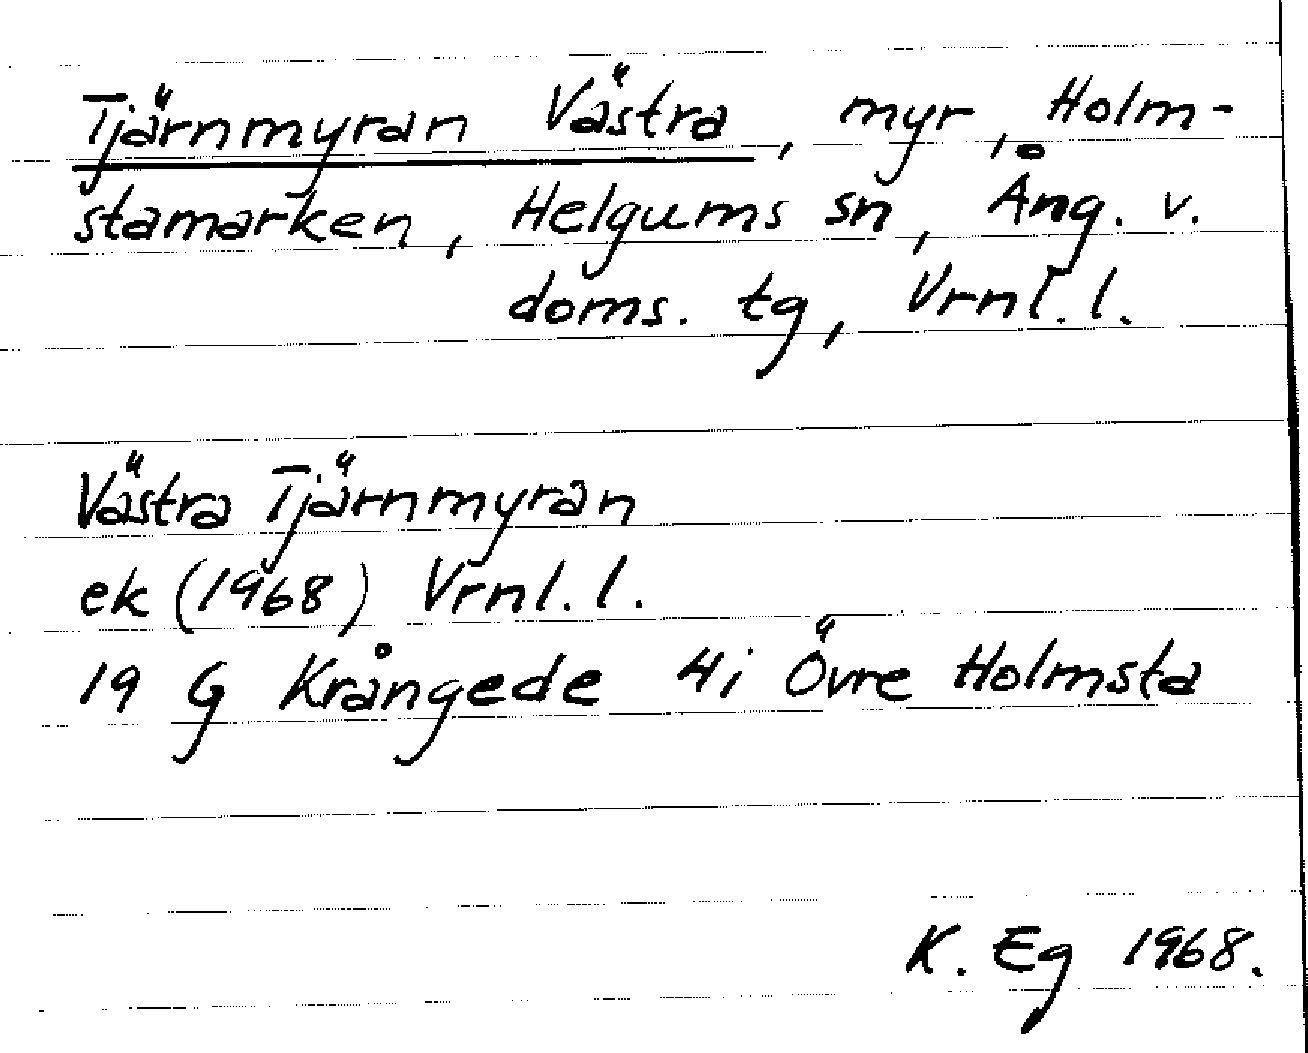 Tjärnmyran Västra, myr, Holm-
stamarken, Helgums sn, Ång. v.
doms. tg, Vrnl. l.
Västra Tjärnmyran
ek (1968) Vrnl. l.
19 G Krångede 4i Övre Holmsta
K. Eg 1968.